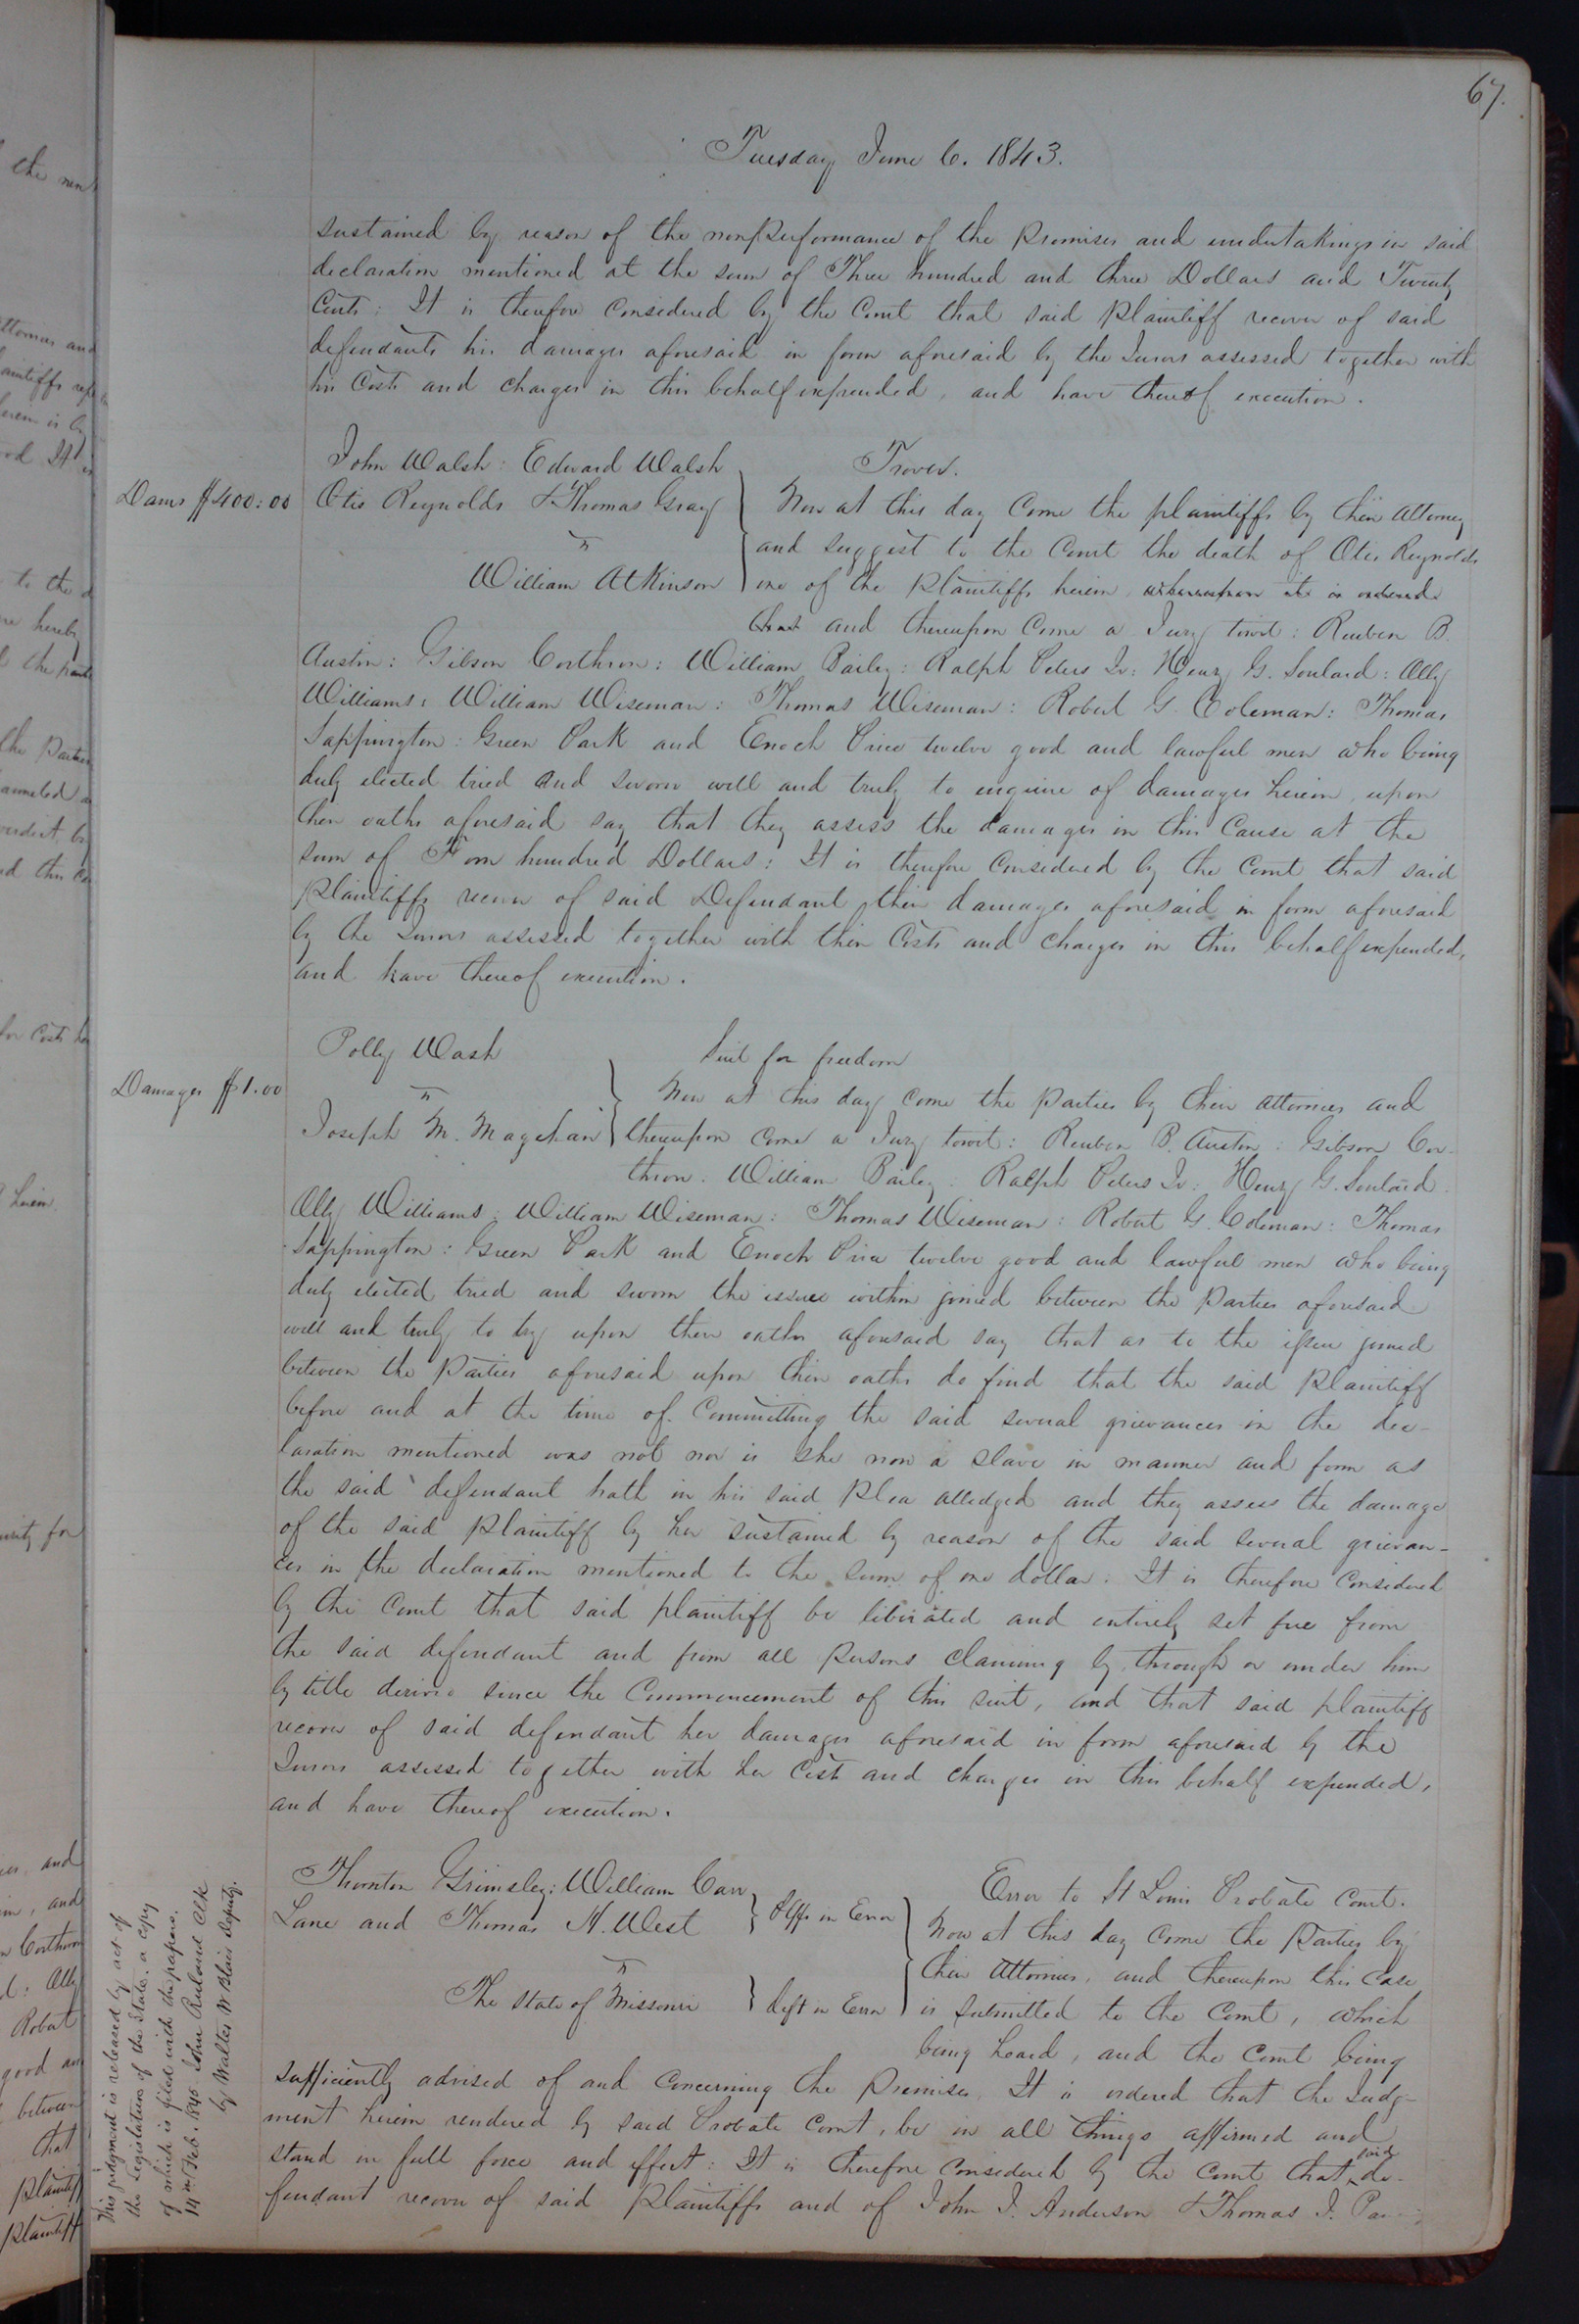 67.
Tuesday June 6. 1843.
sustained by reason of the nonperformance of the promises and undertakings in said
declaration mentioned at the sum of Three hundred and three Dollars and Twenty
Cents: It is therefore Considered by the Court that said plaintiff recover of said
defendants his damages aforesaid in form aforesaid by the Jurors assessed together with
his Costs and charges in this behalf expended, and have thereof execution.
John Walsh: Edward Walsh
Otis Reynolds & Thomas Gray
vs
William Atkinson
Dams $400:00
Trover.
Now at this day Come the plaintiffs by their attorney
and suggest to the Court the death of Otis Reynolds
one of the plaintiffs herein, whereupon it is ordered
that and thereupon Come a Jury towit: Reuben B.
Austin: Gibson Corthron: William Bailey: Ralph Peters Jr: Henry G. Soulard: Ally
Williams: William Wiseman: Thomas Wiseman: Robert G. Coleman: Thomas
Sappington: Green Park and Enoch Price twelve good and lawful men who being
duly elected tried and sworn well and truly to enquire of damages herein, upon
their oaths aforesaid say that they assess the damages in this Cause at the
sum of Four hundred Dollars: It is therefore Considered by the Court that said
plaintiffs recover of said Defendant their damages aforesaid in form aforesaid
by the Jurors assessed together with their Costs and charges in this behalf expended,
and have thereof execution.
Polly Wash
vs
Joseph M. Magehan
Damages $1.00
Suit for freedom
Now at this day come the parties by their attornies and
thereupon come a Jury towit: Reuben B. Austin: Gibson Cor-
thron. William Bailey: Ralph Peters Jr: Henry G. Soulard.
Ally Williams: William Wiseman: Thomas Wiseman: Robert G. Coleman: Thomas
Sappington: Green Park and Enoch Price twelve good and lawful men who being
duly elected tried and sworn the issue within joined between the parties aforesaid
well and truly to try upon their oaths aforesaid say that as to the issue joined
between the Parties aforesaid upon their oaths do find that the said plaintiff
before and at the time of Committing the said several grievances in the dec-
laration mentioned was not nor is she now a slave in manner and form as
the said defendant hath in his said plea alledged and they assess the damage
of the said plaintiff by her sustained by reason of the said several grievan-
ces in the declaration mentioned to the sum of one dollar. It is therefore Considered
by the Court that said plaintiff be liberated and entirely set free from
the said defendant and from all persons claiming by, through or under him
by title derived since the Commencement of this suit, and that said plaintiff
recover of said defendant her damages aforesaid in form aforesaid by the
Jurors assessed together with her Costs and charges in this behalf expended,
and have thereof execution.
Thornton Grimsley: William Carr
Lane and Thomas H. West
Plffs in Error
vs
The State of Missouri
deft in Error
Error to St Louis Probate Court.
Now at this day Come the Parties by
their Attornies, and thereupon this Case
is submitted to the Court, which
being heard, and the Court being
sufficiently advised of and Concerning the Premises, It is ordered that the Judg-
ment herein rendered by said Probate Court, be in all things affirmed and
stand in full force and effect: It is therefore Considered by the Court that said de-
fendant recover of said plaintiffs and of John J. Anderson & Thomas J.
This judgment is released by act of
the Legislature of the State, a copy
of which is filed with the papers.
John Ruland Clk
by Walter W Blair Deputy.